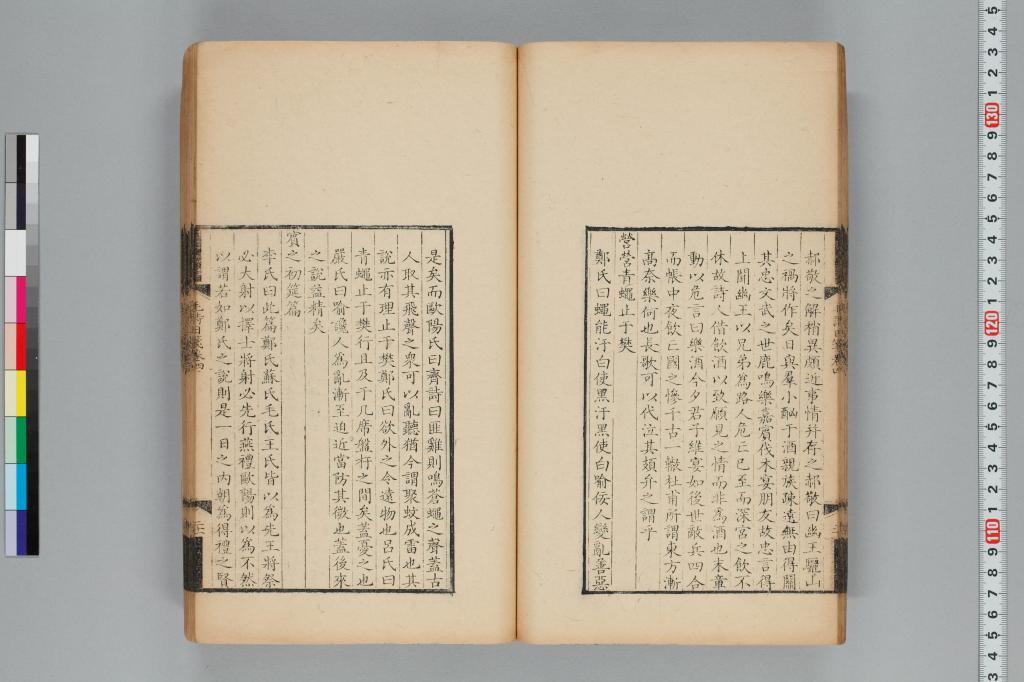 郝敬之解稍異頗近事情并存之郝敬曰幽王驪山
之禍將作矣日與羣小酗于酒親族疎遠無由得關
其忠文武之世鹿鳴樂嘉賓伐木宴朋友故忠言得
上聞幽王以兄弟為路人危亡已至而深宮之飲不
休故詩人借飲酒以致願見之情而非為酒也末章
動以危言曰樂酒今夕君子維宴如後世敵兵四合
而帳中夜飲亡國之慘千古一轍杜甫所謂東方漸
高奈樂何也長歌可以代泣其頍弁之謂乎
營營青蠅止于樊
鄭氏曰蠅能汙白使黑汙黑使白喻佞人變亂善惡
是矣而歐陽氏曰齊詩曰匪雞則鳴蒼蠅之聲蓋古
人取其飛聲之衆可以亂聽猶今謂聚蚊成雷也其
說亦有理止于樊鄭氏曰欲外之令遠物也呂氏曰
青蠅止于樊行且及于几席盤杅之間矣蓋憂之也
嚴氏曰喻讒人為亂漸至迫近當防其微也蓋後來
之說益精矣
賓之初筵篇
李氏曰此篇鄭氏蘇氏毛氏王氏皆以為先王將祭
必大射以擇士將射必先行燕禮歐陽則以為不然
以謂若如鄭氏之說則是一日之內朝為得禮之賢